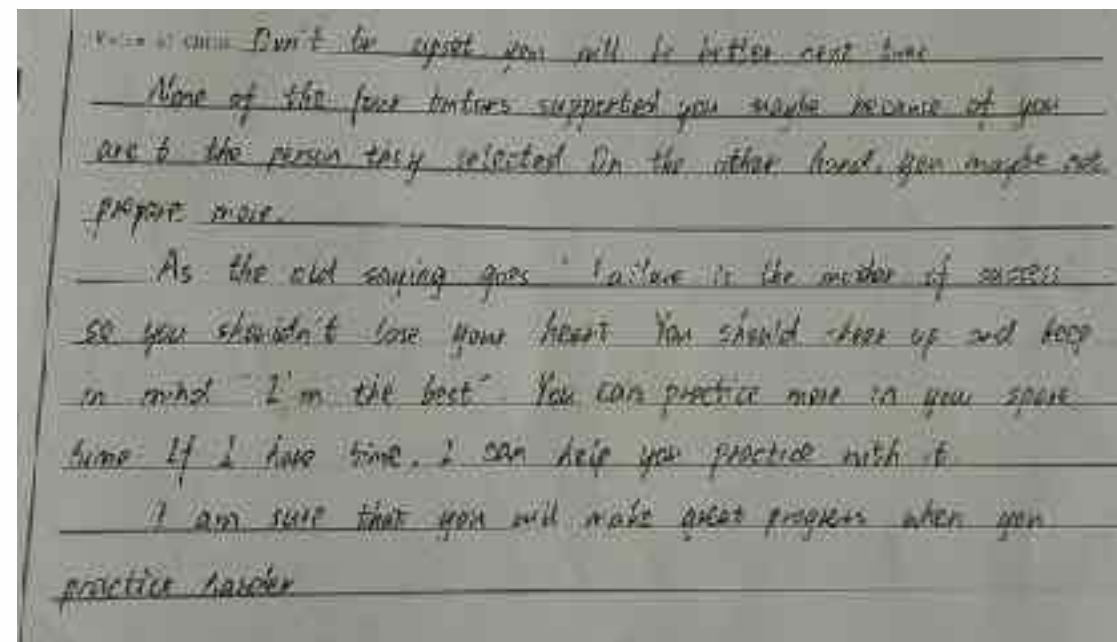 Voice of China. Don't be upset you will be better next time
None of the four tutors supported you maybe because of you
are the person they selected On the other hand, you maybe not
prepare more.
As the old saying goes " Failure is the mother of success
so you shouldn't lose your heart You should cheer up and keep
in mind "I'm the best". You can practice more in your spare
time If I have time, I can help you practice with it
I am sure that you will make great progress when you
practice harder